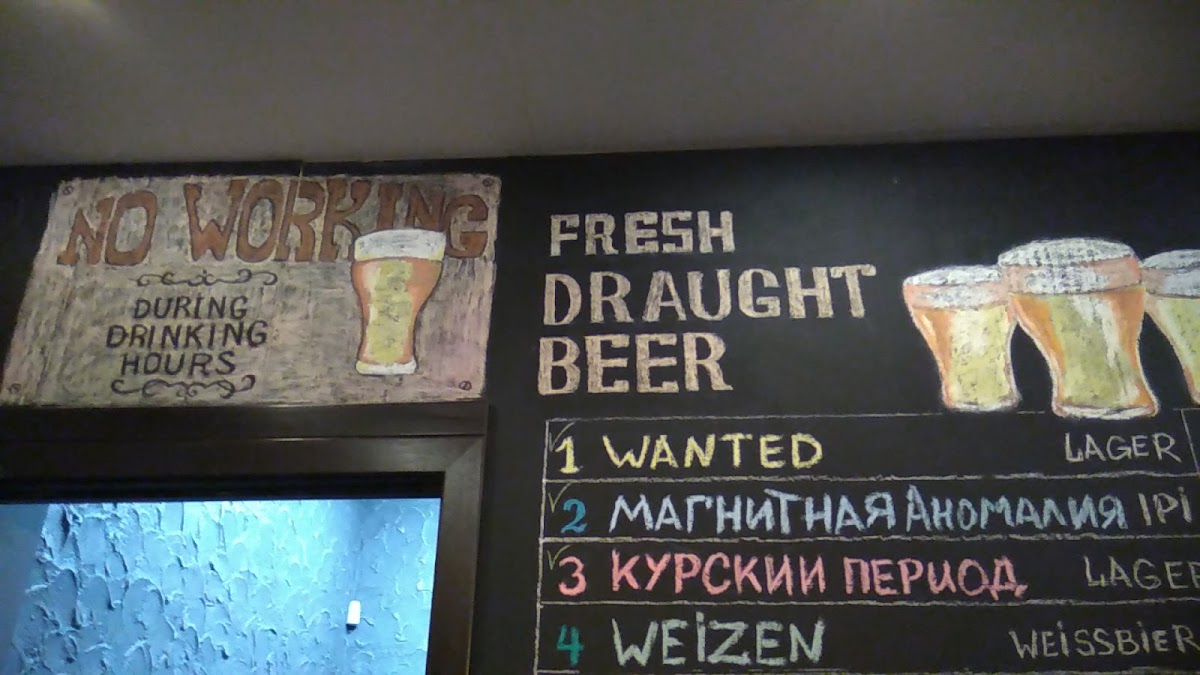 NO WORKING
DURING
DRINKING
HOURS
FRESH
DRAUGHT
BEER
1 WANTED LAGER
2 МАГНИТНАЯ АНОМАЛИЯ IPi
3 КУРСКИИ ПЕРИОД LAGE
4 WEiZEN WEiSSBiER